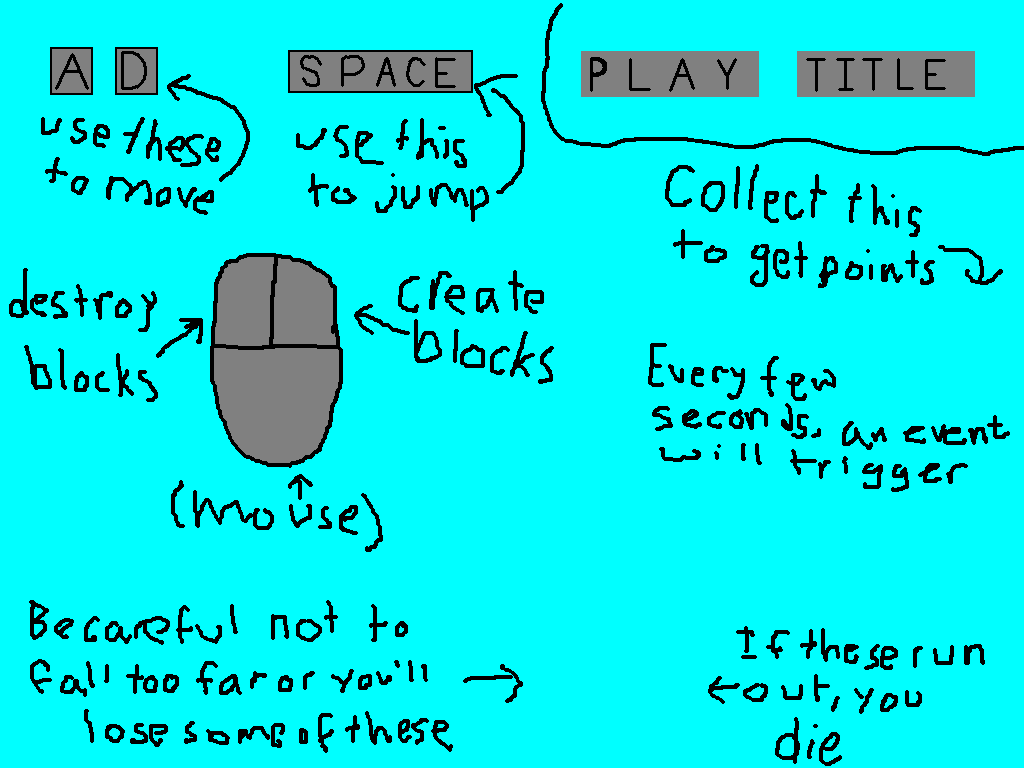 A D
use these
to move
SPACE
use this
to jump
PLAY
TITLE
Collect this
to get points
destroy
blocks
create
blocks
(mouse)
Every few
seconds, an event
will trigger
Be careful not to
fall too far or you'll
lose some of these
If these run
out, you
die